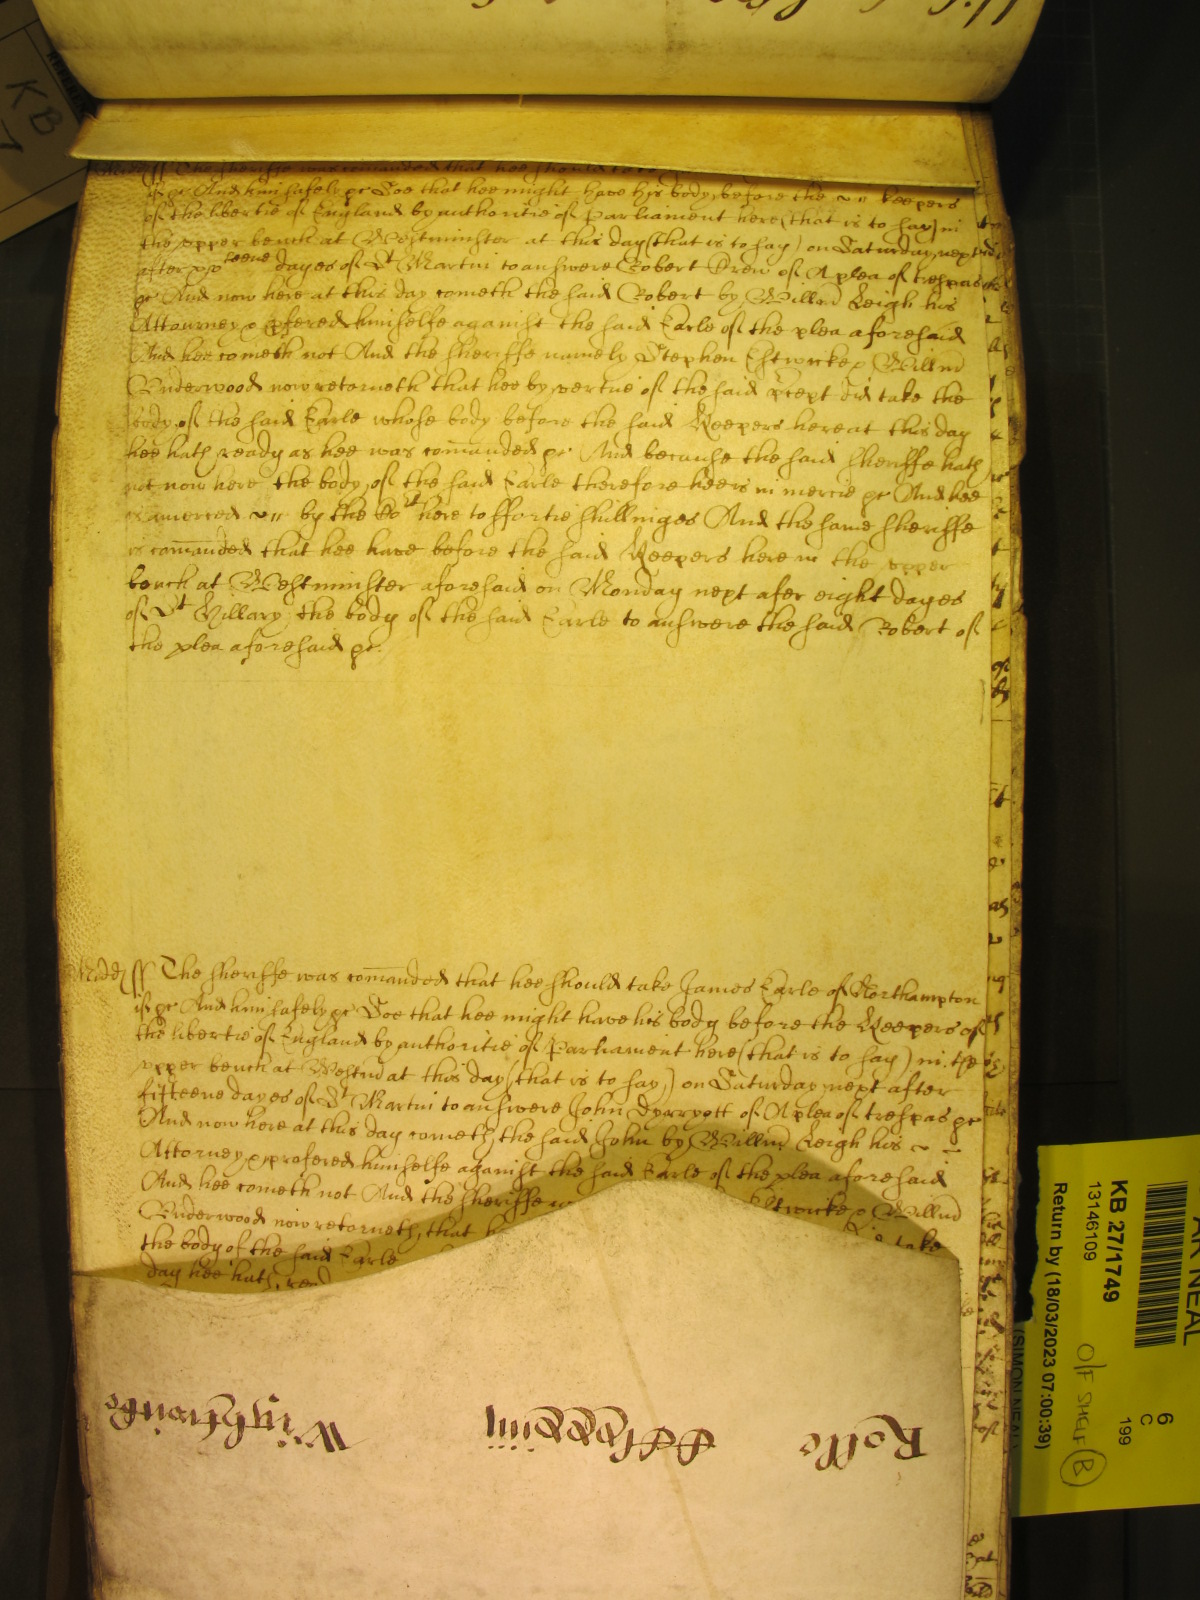 ss The sheriffe was comanded that hee should
is &c And him safely &c Soe that hee might have his body before the keepers
of the libertie of England by authoritie of Parliament here (that is to say) in
the upper bench at Westminster at this day (that is to say) on Saturday next
after dayes of St Martin to answere Robert Drew of A plea of trespas
&c And now here at this day cometh the said Robert by Willm Leigh his
Attourney & pfered himselfe against the said Earle of the plea aforesaid
And hee cometh not And the sheriffe namely Stephen Estwicke & Willm
Underwood now retorneth that hee by vertue of the said pcept did take the
body of the said Earle whose body before the said Keepers here at this day
hee hath ready as hee was comanded &c And because the said sheriffe hath
not now here the body of the said Earle therefore hee is in mercie &c And hee
is amerced by the Cort here to ffortie shillinges And the same sheriffe
is comanded that hee have before the said Keepers here in the upper
bench at Westminster aforesaid on Monday next after eight dayes
of St Hillary the body of the said Earle to answere the said Robert of
the plea aforesaid &c
Midd ss The sheriffe was comanded that hee should take James Earle of Northampton
if &c And him safely &c Soe that hee might have his body before the Keepers of
the libertie of England by authoritie of Parliament here (that is to say) in the
upper bench at Westm at this day (that is to say) on Saturday next after
fifteene dayes of St Martin to answere John of A plea of trespas &c
And now here at this day cometh the said John by Willm Leigh his
Attorney & profered himselfe against the said Earle of the plea aforesaid
And hee cometh not And the sheriffe Estwicke & Willm
Underwood now retorneth that take
the body of the said Earle
day hee hath
Rolle
Wightwicke
KB 27/1749
13146109
Return by (18/03/2023 07:00:39)
(SIMON NEAL)
O/F SHELF B
6
C
199
KB